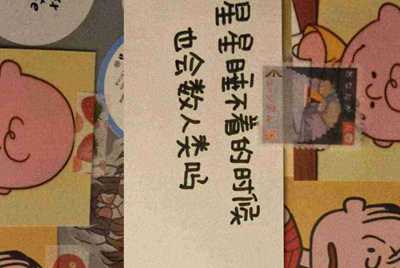 星星睡不着的时候
也会数人类吗